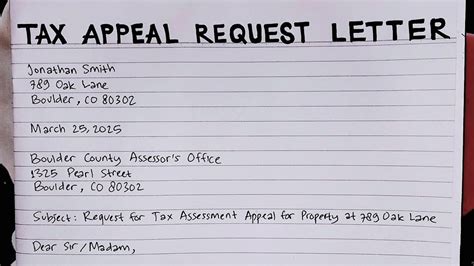 TAX APPEAL REQUEST LETTER
Jonathan Smith
789 Oak Lane
Boulder, CO 80302
March 25, 2025
Boulder County Assessor's Office
1325 Pearl Street
Boulder, CO 80302
Subject: Request for Tax Assessment Appeal for Property at 789 Oak Lane
Dear Sir/Madam,